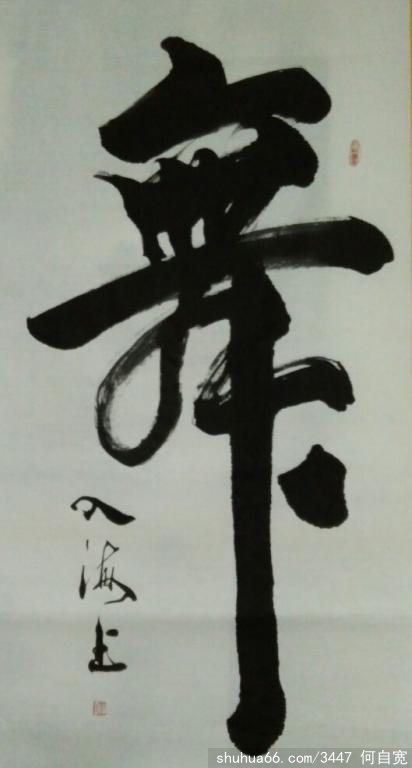 舞
海上
shuhua66.com/3447 何自宽